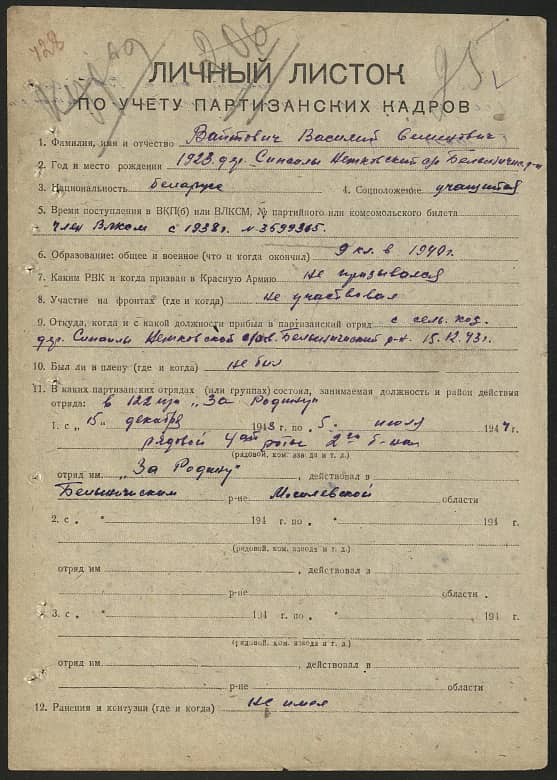 728
206
ЛИЧНЫЙ ЛИСТОК
ПО УЧЕТУ ПАРТИЗАНСКИХ КАДРОВ
1. Фамилия, имя и отчество Войтович Василий Семенович
2. Год и место рождения 1923 дер. Сипайлы Нетковский с/с
3. Национальность беларус 4. Соцположение учащийся
5. Время поступления в ВКП(б) или ВЛКСМ, № партийного или комсомольского билета
член Влксм с 1938г. №3699365.
6. Образование: общее и военное (что и когда окончил) 9 кл. в 1940г.
7. Каким РВК и когда призван в Красную Армию не призывался
8. Участие на фронтах (где и когда) не участвовал
9. Откуда, когда и с какой должности прибыл в партизанский отряд с сель. хоз.
дер. Сипайлы Нетковской Белыничский р-н. 15.12.43г.
10. Был ли в плену (где и когда) не был
11. В каких партизанских отрядах (или группах) состоял, занимаемая должность и район действия
отряда: в 122 „За Родину"
1. с „15" декабря 1943 г. по „5" июля 1944 г.
рядовой 4ой роты 2го б-на
(рядовой, ком. взвода и т. д.)
отряд им. „За Родину", действовал в
Белыничском р-не Могилевской области
2. с „ " 194 г. по „ " 194 г.
(рядовой, ком. взвода и т. д.)
отряд им , действовал в
р-не области.
3. с „ " 194 г. по „ " 194 г.
(рядовой, ком. взвода и т. д.)
отряд им. , действовал в
р-не области
12. Ранения и контузии (где и когда) не имел